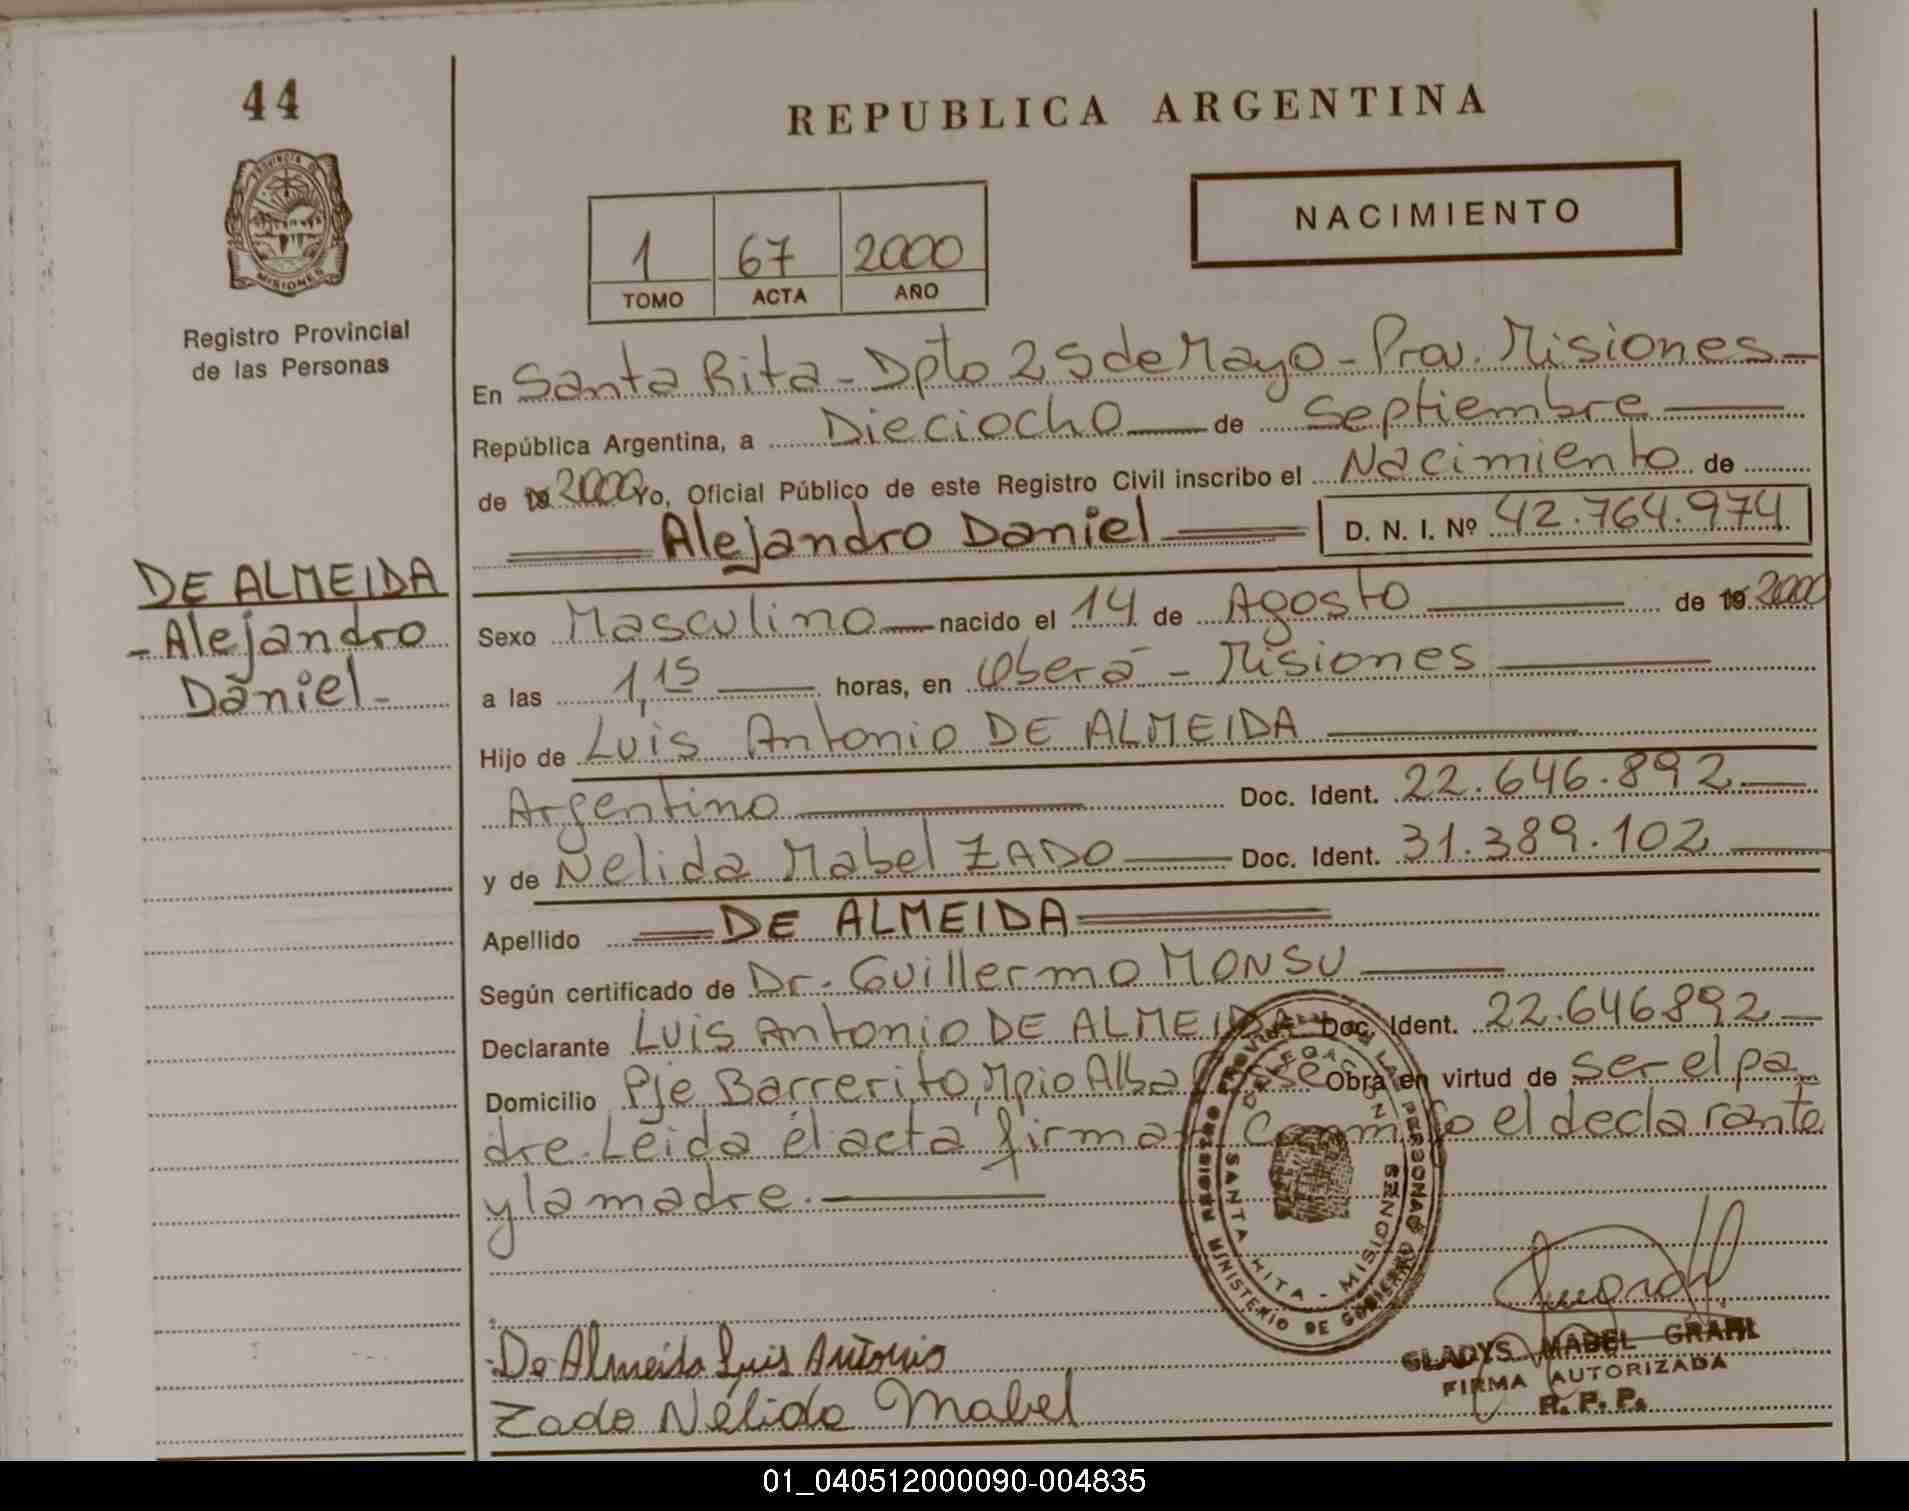 44
REPUBLICA ARGENTINA
PROVINCIA DE MISIONES
Registro Provincial
de las Personas
1 67 2000
TOMO ACTA AÑO
NACIMIENTO
En Santa Rita - Dpto 25 de Mayo - Prov. Misiones
República Argentina, a Dieciocho de Septiembre
de 19 2000 Yo, Oficial Público de este Registro Civil inscribo el Nacimiento de
Alejandro Daniel D. N. I. Nº 42.764.974
DE ALMEIDA
- Alejandro
Daniel -
Sexo Masculino nacido el 14 de Agosto de 19 2000
a las 1,15 horas, en Oberá - Misiones
Hijo de Luis Antonio DE ALMEIDA
Argentino Doc. Ident. 22.646.892
y de Nelida Mabel ZADO Doc. Ident. 31.389.102
Apellido DE ALMEIDA
Según certificado de Dr. Guillermo MONSU
Declarante Luis Antonio DE ALMEIDA Doc. Ident. 22.646892
Domicilio Pje Barrerito, Mpio Alba Posse Obra en virtud de ser el pa
dre. Leida el acta firman Conmigo el declarante
y la madre.
REGISTRO PROVINCIAL DE LAS PERSONAS
MINISTERIO DE GOBIERNO
DELEGACION
SANTA RITA - MISIONES
De Almeida Luis Antonio
Zado Nélida Mabel
GLADYS MABEL GRAHL
FIRMA AUTORIZADA
R. P. P.
01_040512000090-004835